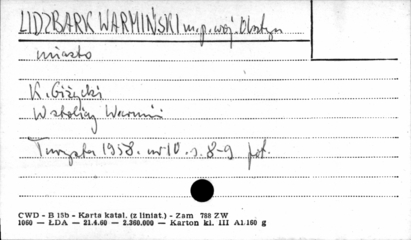 LIDZBARK WARMIŃSKI m.p. woj. Olsztyn
miasto
K. Giżycki
W stolicy Warmii
Turysta 1958. nr 10. s. 8-9 fot.
CWD - B 15b - Karta katal. (z liniat.) - Zam 788 ZW
1060 — ŁDA — 21.4.60 — 2.360.000 — Karton kl. III A1.160 g